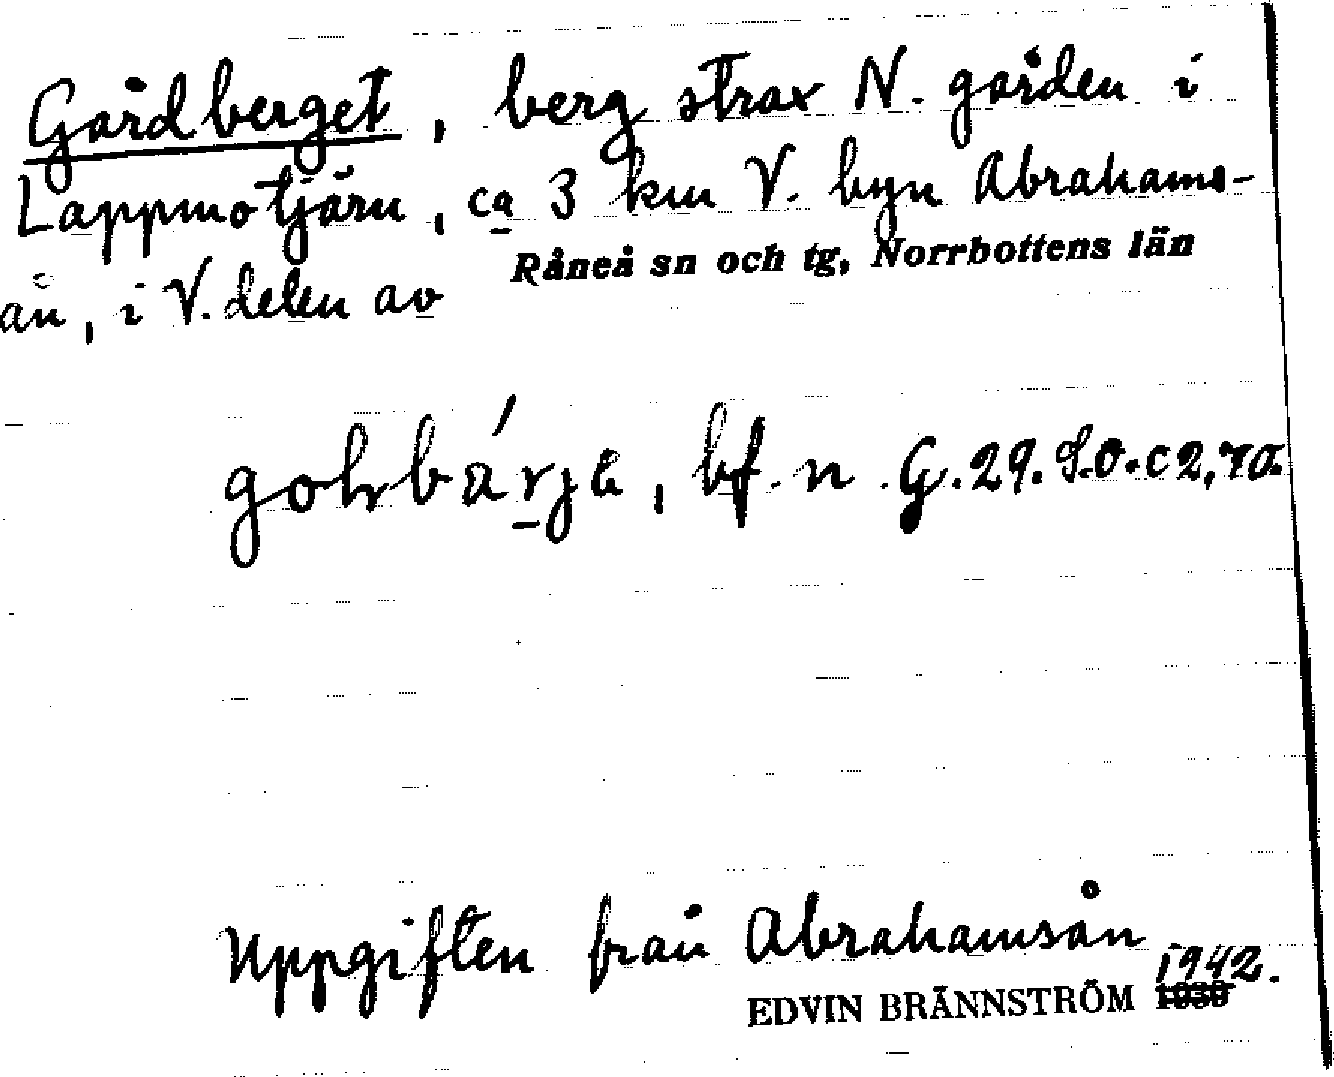 Gårdberget, berg strax N. gården i
Lappmotjärn, ca 3 km V. byn Abrahams-
ån, i V. delen av Råneå sn och tg, Norrbottens län
gohbárje, bf. n G. 29. S.O. c 2, ra.
Uppgiften från Abrahamsån
1942.
EDVIN BRÄNNSTRÖM 1938